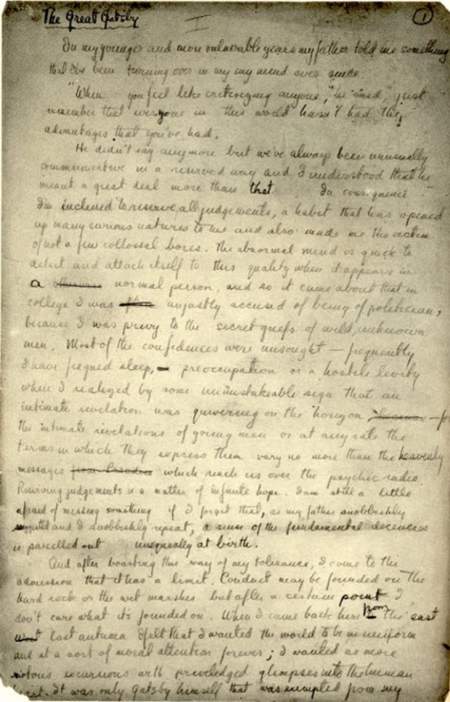 The Great Gatsby
I
1
In my younger and more vulnerable years my father told me something
that I've been turning over in my my mind ever since.
"When you feel like critisizing anyone," he said, "just
remember that everyone in this world hasn't had the
advantages that you've had.
He didn't say anymore but we've always been unusually
communicative in a reserved way and I understood that he
meant a great deal more than that. In consequence
I'm inclined to reserve all judgements, a habit that has opened
up many curious natures to me and also made me the victim
of not a few collossal bores. The abnormal mind is quick to
detect and attach itself to this quality when it appears in
a normal person, and so it came about that in
college I was unjustly accused of being of politician,
because I was privy to the secret griefs of wild, unknown
men. Most of the confidences were unsought — frequently
I have feigned sleep, preoccupation or a hostile levity
when I realized by some unmistakeable sign that an
intimate revelation was quivering on the horizon — for
the intimate revelations of young men or at any rate the
terms in which they express them vary no more than the heavenly
messages which reach us over the psychic radio.
Reserving judgements is a matter of infinite hope. I am still a little
afraid of missing something if I forget that, as my father snobbishly
and I snobbishly repeat, a sense of the fundamental decencies
is parcelled out unequally at birth.
And after boasting this way of my tolerance, I come to the
admission that it has a limit. Conduct may be founded on the
hard rock or the wet marshes but after a certain point I
don't care what it's founded on. When I came back here from the east
last autumn I felt that I wanted the world to be in uniform
and at a sort of moral attention forever; I wanted no more
riotous excursions with priviledged glimpses into the human
heart. It was only Gatsby himself that was exempted from my